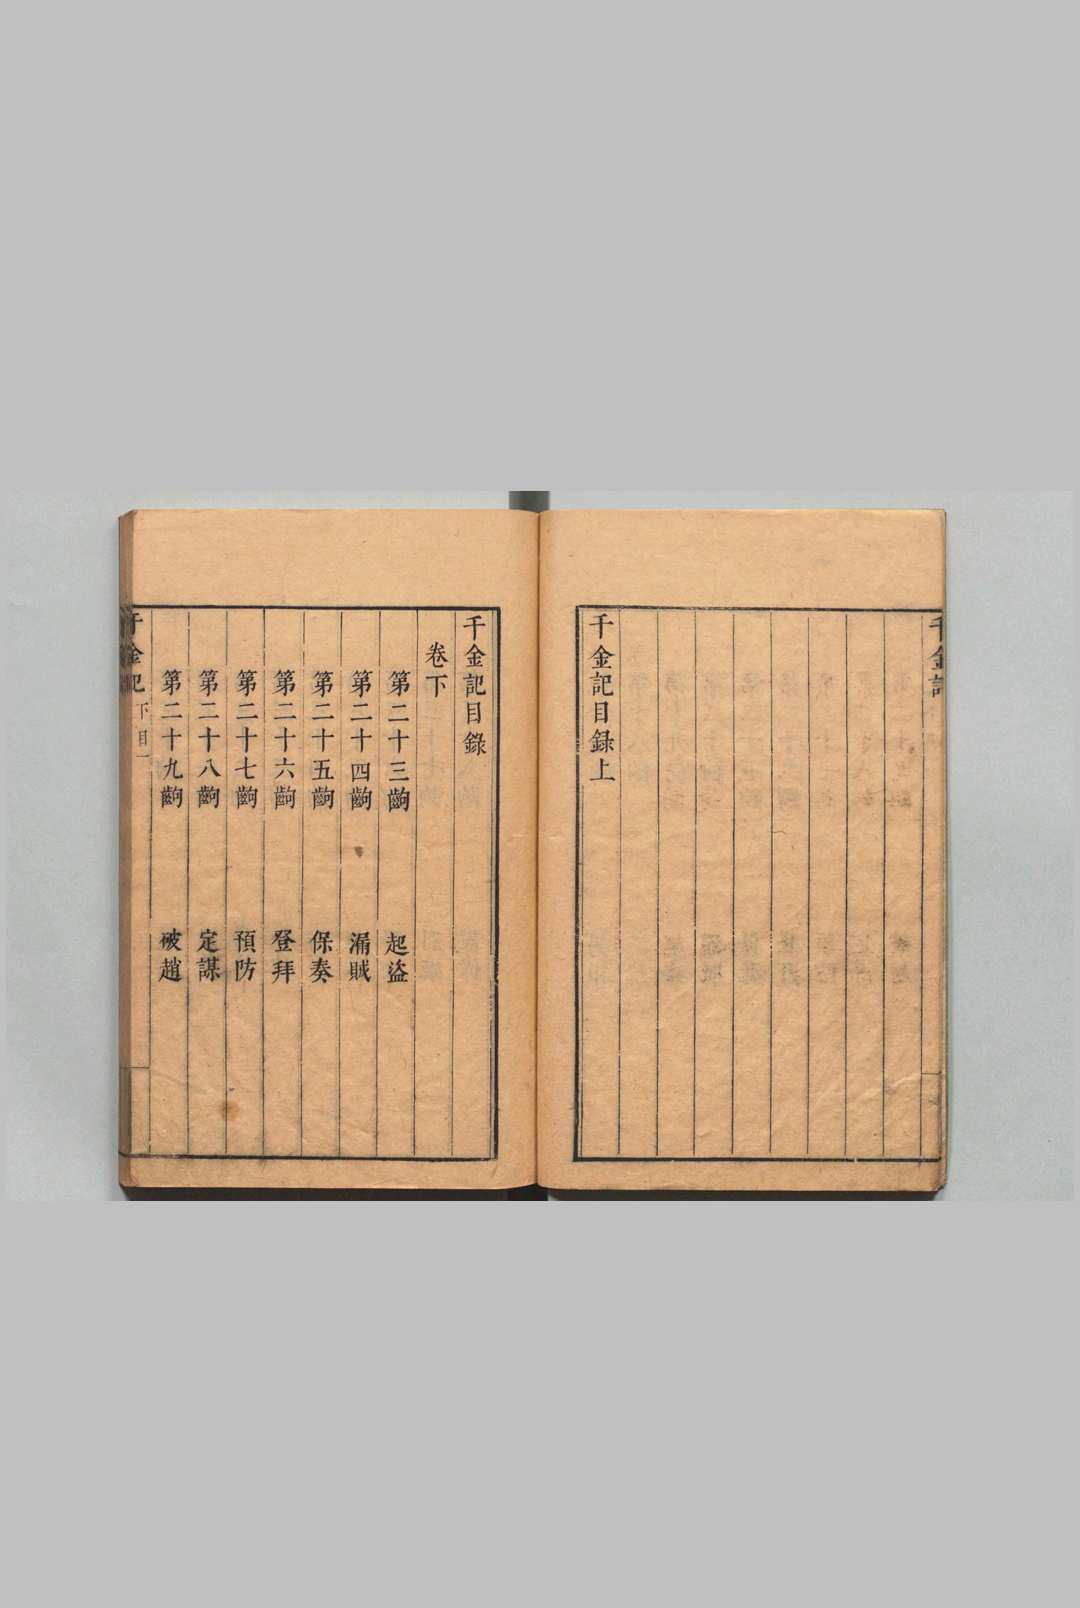 千金記
千金記目録上
千金記目錄
卷下
第二十三齣 起盜
第二十四齣 漏賊
第二十五齣 保奏
第二十六齣 登拜
第二十七齣 預防
第二十八齣 定謀
第二十九齣 破趙
千金記 下目一